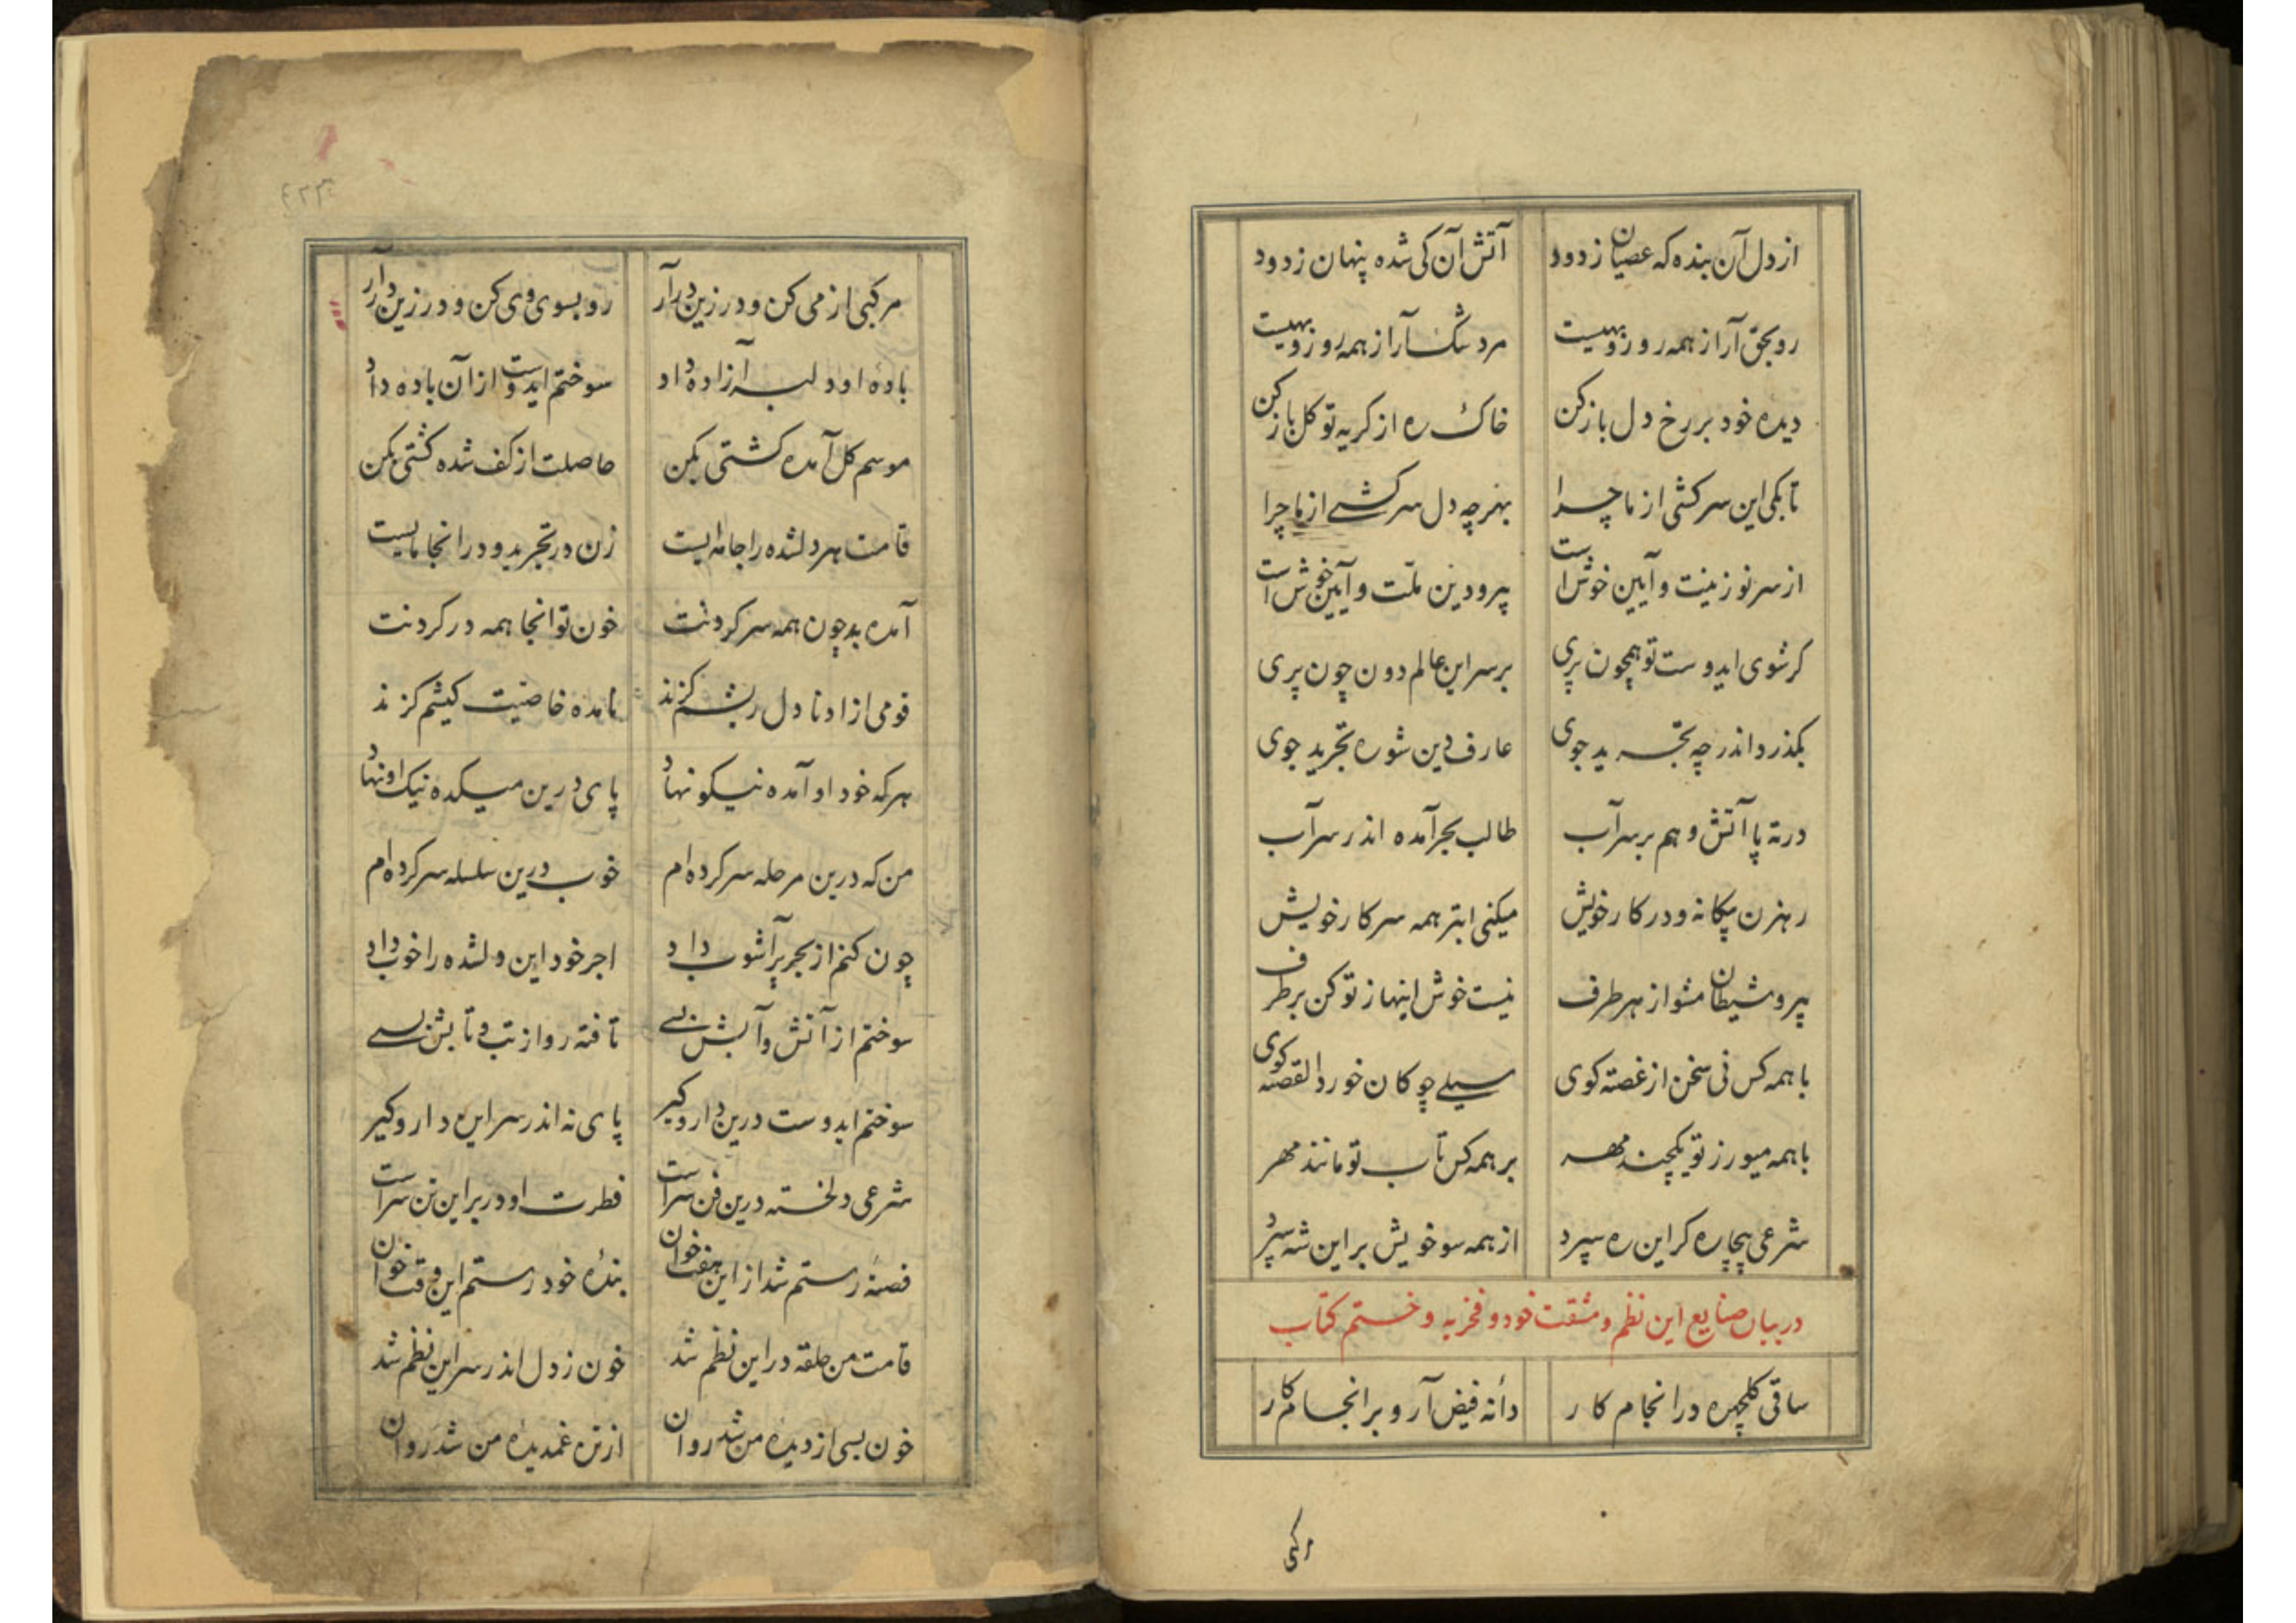 از دل آن بنده که عصیان زدود آتش آن کی شده پنهان ز دود
رو بحق آر از همه رو زو بهیست مرد شک آر از همه روزو بهیست
دیده خود بر رخ دل باز کن خاک ره از کریه تو کل باز کن
تا بکی این سرکشی از ما چرا بهر چه دل سرکشی از ما چرا
از سر نو زینت و آیین خوش است پیرو دین ملت و آیین خوش است
کر شوی ایدوست تو همچون پری بر سر این عالم دون چون پری
بکذر و اندر چه تجرید جوی عارف دین شو ره تجرید جوی
در ته پا آتش و هم بر سر آب طالب بحر آمده اندر سر آب
رهزن بیکانه و در کار خویش میکنی ابتر همه سر کار خویش
پیرو شیطان مشو از هر طرف نیست خوش اینها ز تو کن بر طرف
با همه کس نی سخن از غصه کوی سیلی چوکان خورد القصه کوی
با همه میورز تو یکچند مهر بر همه کس تاب تو مانند مهر
شرعی بیچاره کر این ره سپرد از همه سو خویش بر این شه سپرد
در بیان صنایع این نظم و مشقت خود و فخریه و ختم کتاب
ساقی کلچهره در انجام کار دانه فیض آر و بر انجام کار
مرکبی
٤٢٣
مرکبی از می کن و در زین در آر رو بسوی وی کن و در زین در آر
باده او دل به آزاده داد سوختم ایدوست از آن باده داد
موسم کل آمده کشتی بکن حاصلت از کف شده کشتی بکن
قامت هر دلشده را جامه ایست زن در تجرید و در انجا مایست
آمده بد چون همه سر کردنت خون تو انجا همه در کردنت
قومی از او تا دل ریشم کزند نامده خاصیت کیشم کزند
هر که خود او آمده نیکو نهاد پای درین میکده نیک او نهاد
من که درین مرحله سر کرده ام خوب درین سلسله سر کرده ام
چون کنم از بحر پر آشوب داد اجر خود این دلشده را خوب داد
سوختم از آتش و آبش بسی تافته رو از تب و تابش بسی
سوختم ایدوست درین دار و کیر پای نه اندر سر این دار و کیر
شرعی دلخسته درین فن سر است فطرت او در بر این تن سر است
قصه رستم شد از این هفت خوان بنده خود رستم این وقت خوان
قامت من حلقه در این نظم شد خون ز دل اندر سر این نظم شد
خون بسی از دیده من شد روان از تن غمدیده من شد روان